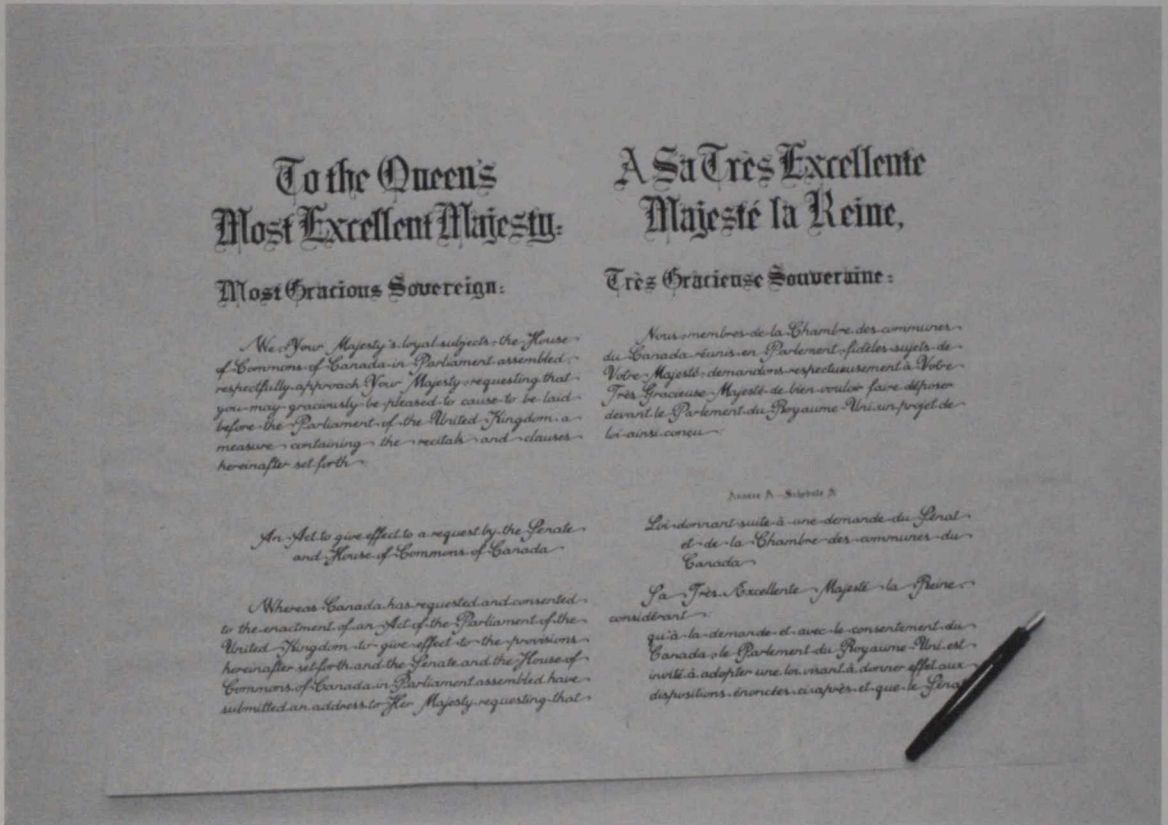 To the Queen's
Most Excellent Majesty:
Most Gracious Sovereign:
We, Your Majesty's loyal subjects, the House
of Commons of Canada in Parliament assembled,
respectfully approach Your Majesty, requesting that
you may graciously be pleased to cause to be laid
before the Parliament of the United Kingdom a
measure containing the recitals and clauses
hereinafter set forth:
An Act to give effect to a request by the Senate
and House of Commons of Canada
Whereas Canada has requested and consented
to the enactment of an Act of the Parliament of the
United Kingdom to give effect to the provisions
hereinafter set forth and the Senate and the House of
Commons of Canada in Parliament assembled have
submitted an address to Her Majesty requesting that
A Sa Très Excellente
Majesté la Reine,
Très Gracieuse Souveraine:
Nous, membres de la Chambre des communes
du Canada réunis en Parlement, fidèles sujets de
Votre Majesté, demandons respectueusement à Votre
Très Gracieuse Majesté de bien vouloir faire déposer
devant le Parlement du Royaume-Uni un projet de
loi ainsi conçu:
Annexe A - Schedule A
Loi donnant suite à une demande du Sénat
et de la Chambre des communes du
Canada
Sa Très Excellente Majesté la Reine,
considérant:
qu'à la demande et avec le consentement du
Canada, le Parlement du Royaume-Uni est
invité à adopter une loi visant à donner effet aux
dispositions énoncées ci-après et que le Sénat